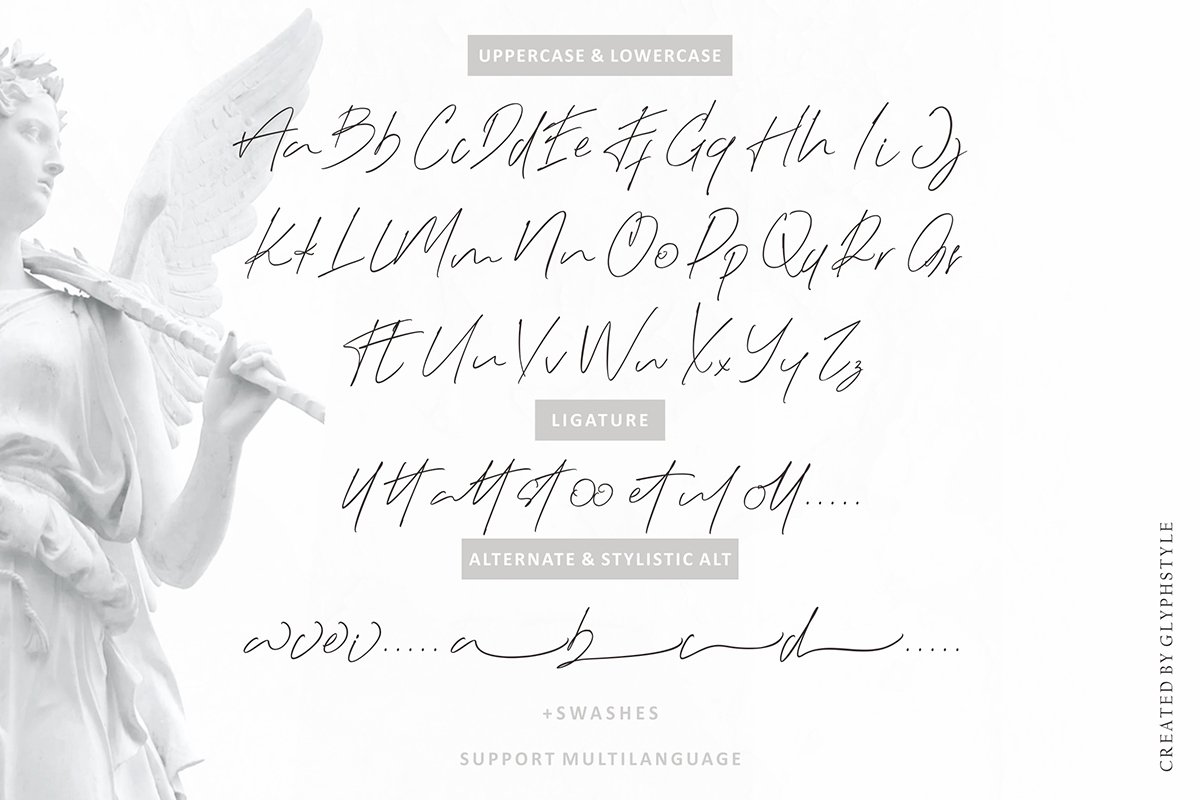 UPPERCASE & LOWERCASE
Aa Bb Cc Dd Ee Ff Gg Hh Ii Jj
Kk Ll Mm Nn Oo Pp Qq Rr Ss
Tt Uu Vv Ww Xx Yy Zz
LIGATURE
tt att st oo et ul oll.....
ALTERNATE & STYLISTIC ALT
a b c d.....
+SWASHES
SUPPORT MULTILANGUAGE
CREATED BY GLYPHSTYLE